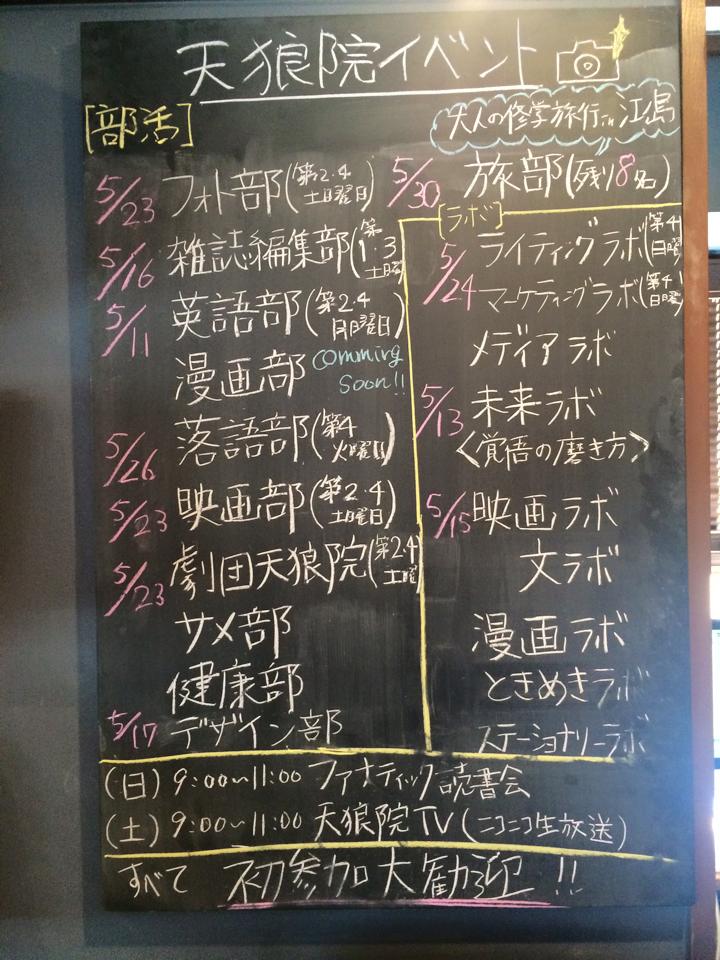 天狼院イベント
[部活]
大人の修学旅行in江島
5/23 フォト部(第2.4土曜日)
5/30 旅部(残り8名)
5/16 雑誌編集部(第1.3土曜
5/11 英語部(第2.4月曜日)
漫画部 comming Soon!!
5/26 落語部(第4火曜日)
5/23 映画部(第2.4土曜日)
5/23 劇団天狼院(第2.4土曜
サメ部
健康部
5/17 デザイン部
[ラボ]
5/24 ライティングラボ(第4日曜
マーケティングラボ(第4日曜
メディアラボ
5/13 未来ラボ
<覚悟の磨き方>
5/15 映画ラボ
文ラボ
漫画ラボ
ときめきラボ
ステーショナリーラボ
(日) 9:00~11:00 ファナティック読書会
(土) 9:00~11:00 天狼院TV(ニコニコ生放送)
すべて 初参加大歓迎!!